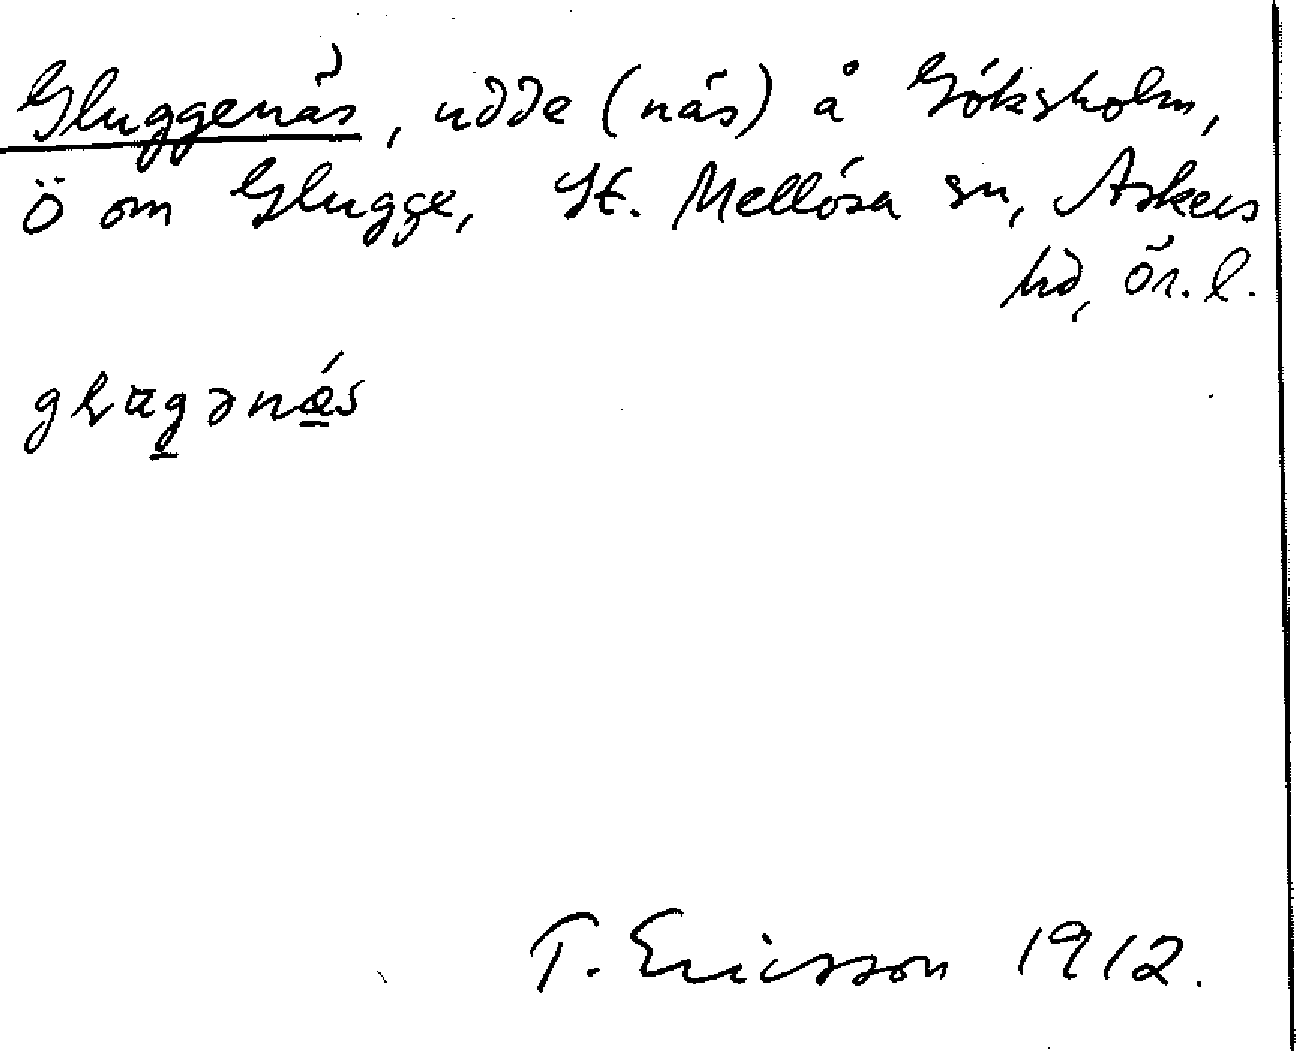 Gluggenäs, udde (näs) å Göksholm,
ö om Glugge, St. Mellösa sn, Askers
hd, Ör. l.
T. Ericsson 1912.